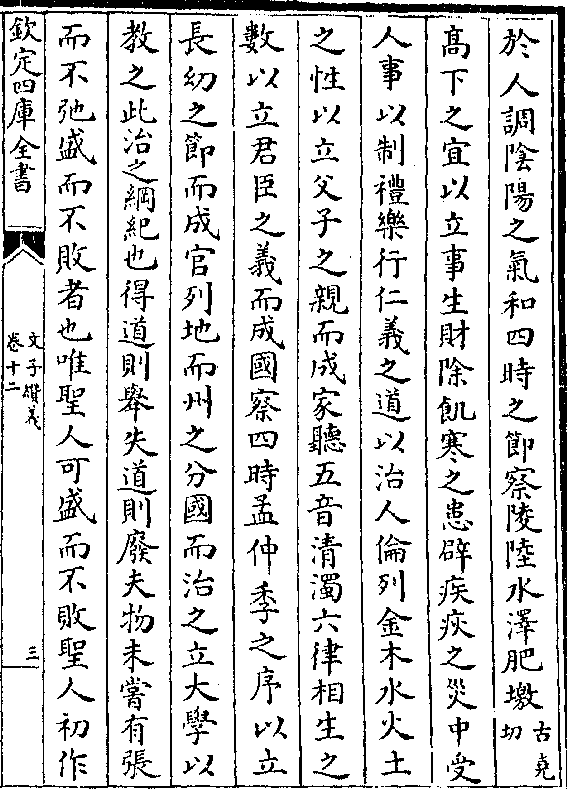 於人調陰陽之氣和四時之節察陵陸水澤肥墽古堯切
高下之宜以立事生財除飢寒之患辟疾疢之災中受
人事以制禮樂行仁義之道以治人倫列金木水火土
之性以立父子之親而成家聽五音清濁六律相生之
數以立君臣之義而成國察四時孟仲季之序以立
長幼之節而成官列地而州之分國而治之立大學以
教之此治之綱紀也得道則舉失道則廢夫物未嘗有張
而不弛盛而不敗者也唯聖人可盛而不敗聖人初作
欽定四庫全書
文子纘義
卷十二
三